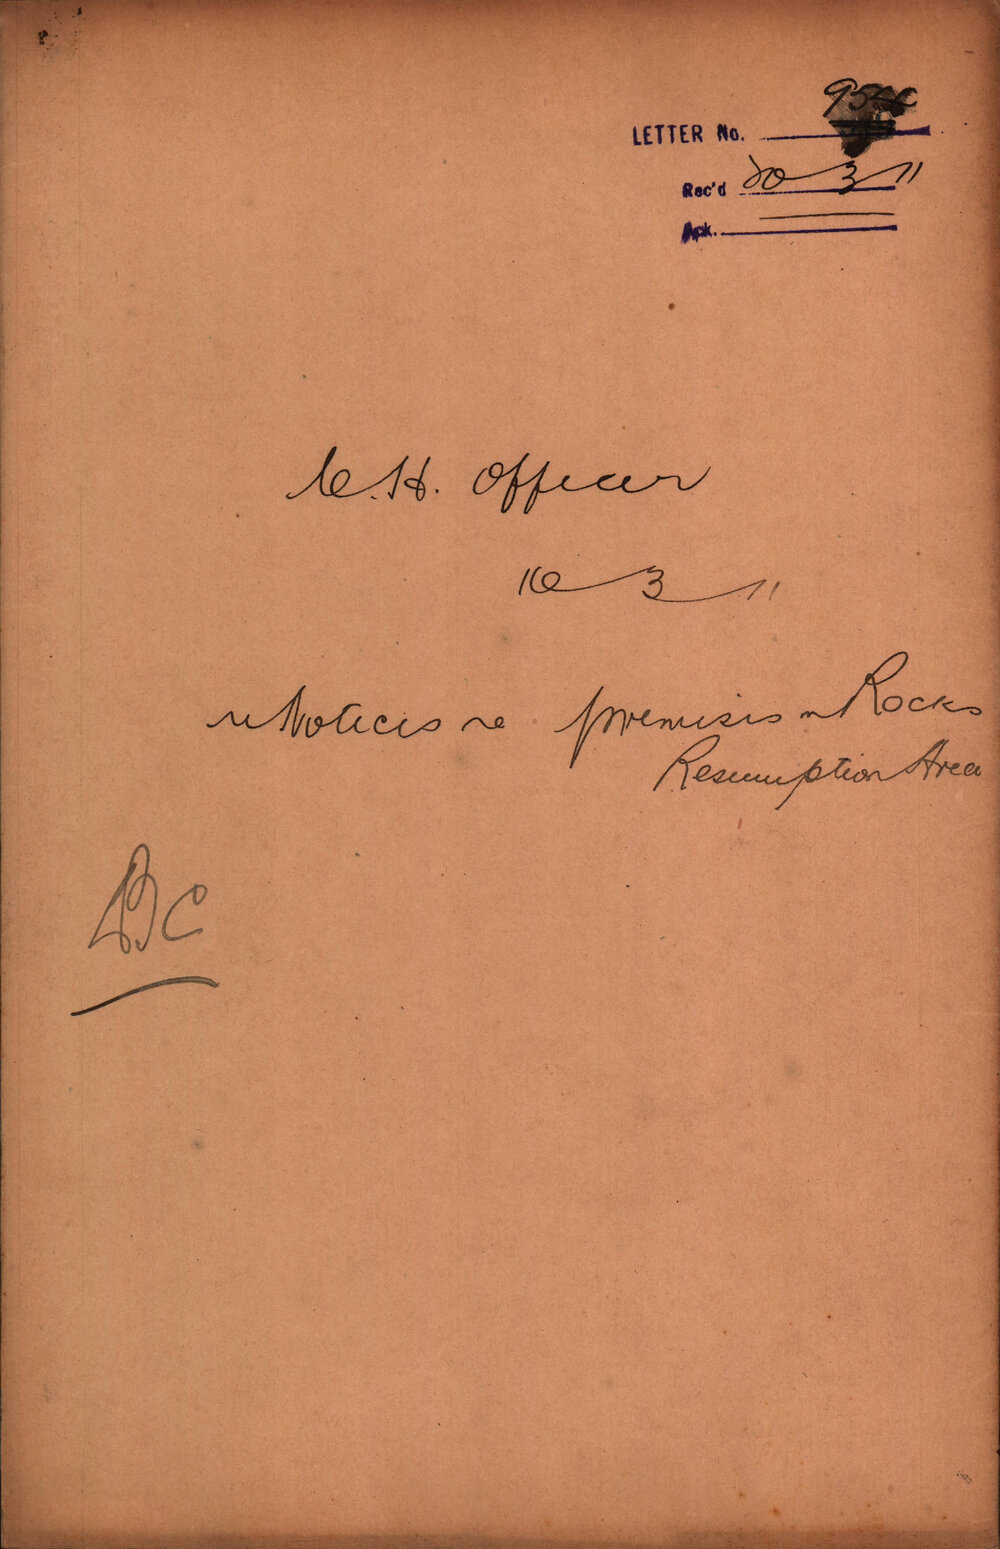 LETTER No.
Rec'd 20 3 11
Ack.
C.H. Officer
16 3 11
re Notices re premises in Rocks
Resumption Area